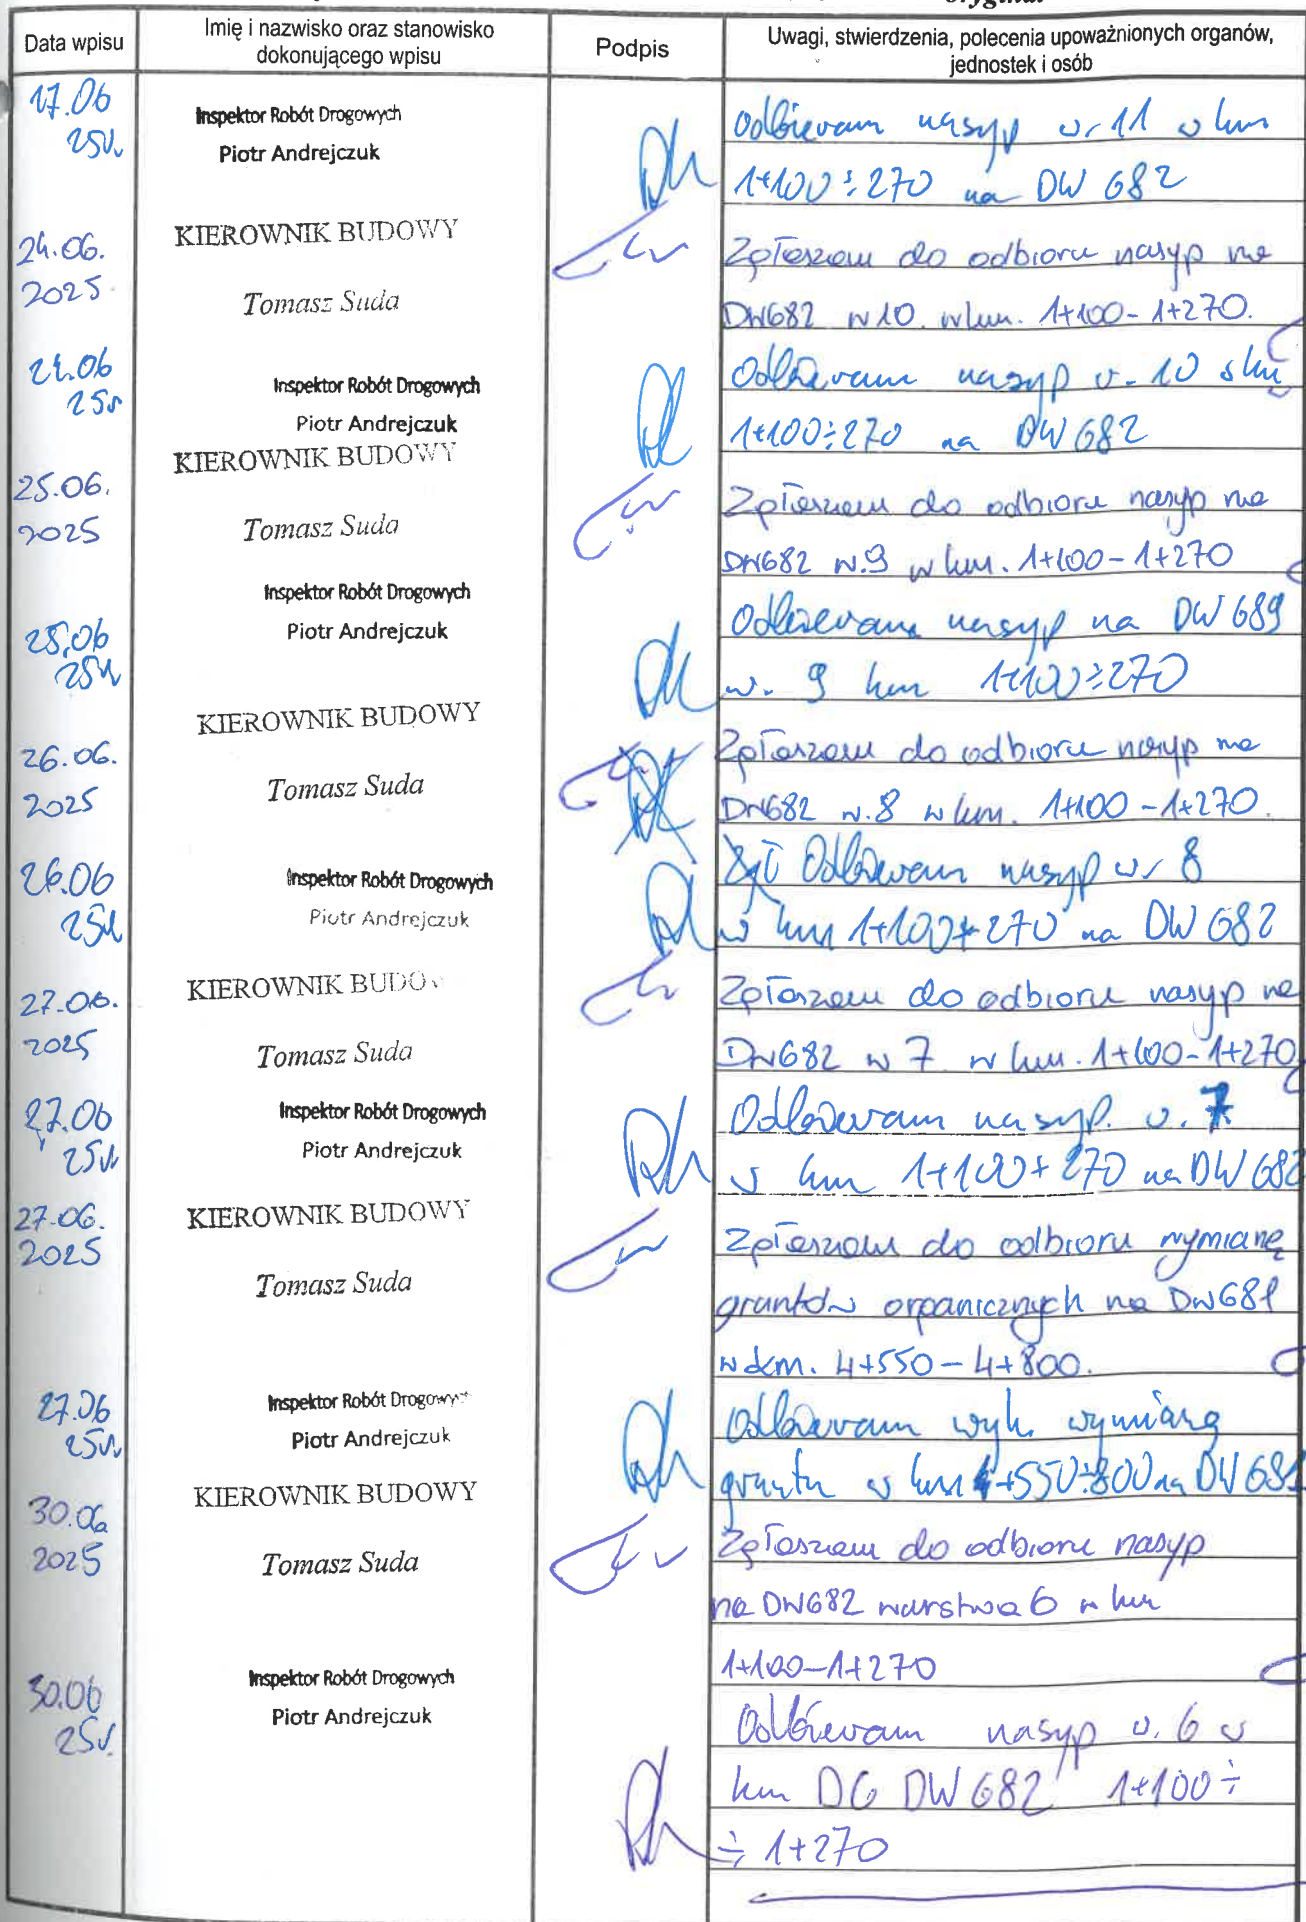 oryginał
Data wpisu
Imię i nazwisko oraz stanowisko
dokonującego wpisu
Podpis
Uwagi, stwierdzenia, polecenia upoważnionych organów,
jednostek i osób
17.06
25r.
Inspektor Robót Drogowych
Piotr Andrejczuk
Odbieram nasyp w 11 w km
1+100÷270 na DW 682
24.06.
2025
KIEROWNIK BUDOWY
Tomasz Suda
Zgłaszam do odbioru nasyp na
DW682 w 10. w km. 1+100-1+270.
24.06
25r
Inspektor Robót Drogowych
Piotr Andrejczuk
Odbieram nasyp w. 10 w km
1+100÷270 na DW 682
25.06.
2025
KIEROWNIK BUDOWY
Tomasz Suda
Zgłaszam do odbioru nasyp na
DW682 w.9 w km. 1+100-1+270
25.06
25r
Inspektor Robót Drogowych
Piotr Andrejczuk
Odbieram nasyp na DW 689
w. 9 km 1+100÷270
26.06.
2025
KIEROWNIK BUDOWY
Tomasz Suda
Zgłaszam do odbioru nasyp na
DW682 w.8 w km. 1+100-1+270.
26.06
25r
Inspektor Robót Drogowych
Piotr Andrejczuk
Odbieram nasyp w 8
w km 1+100÷270 na DW 682
27.06.
2025
KIEROWNIK BUDO
Tomasz Suda
Zgłaszam do odbioru nasyp na
DW682 w 7 w km. 1+100-1+270
27.06
25r
Inspektor Robót Drogowych
Piotr Andrejczuk
Odbieram nasyp. w. 7
w km 1+100÷270 na DW 682
27.06.
2025
KIEROWNIK BUDOWY
Tomasz Suda
Zgłaszam do odbioru wymianę
gruntów organicznych na DW681
w km. 4+550-4+800.
27.06
25r
Inspektor Robót Drogowych
Piotr Andrejczuk
Odbieram wyk. wymianę
gruntu w km 4+550÷800 na DW 681
30.06
2025
KIEROWNIK BUDOWY
Tomasz Suda
Zgłaszam do odbioru nasyp
na DW682 warstwa 6 w km
1+100-1+270
30.06
25r.
Inspektor Robót Drogowych
Piotr Andrejczuk
Odbieram nasyp w. 6 w
km DG DW 682 1+100÷
÷ 1+270